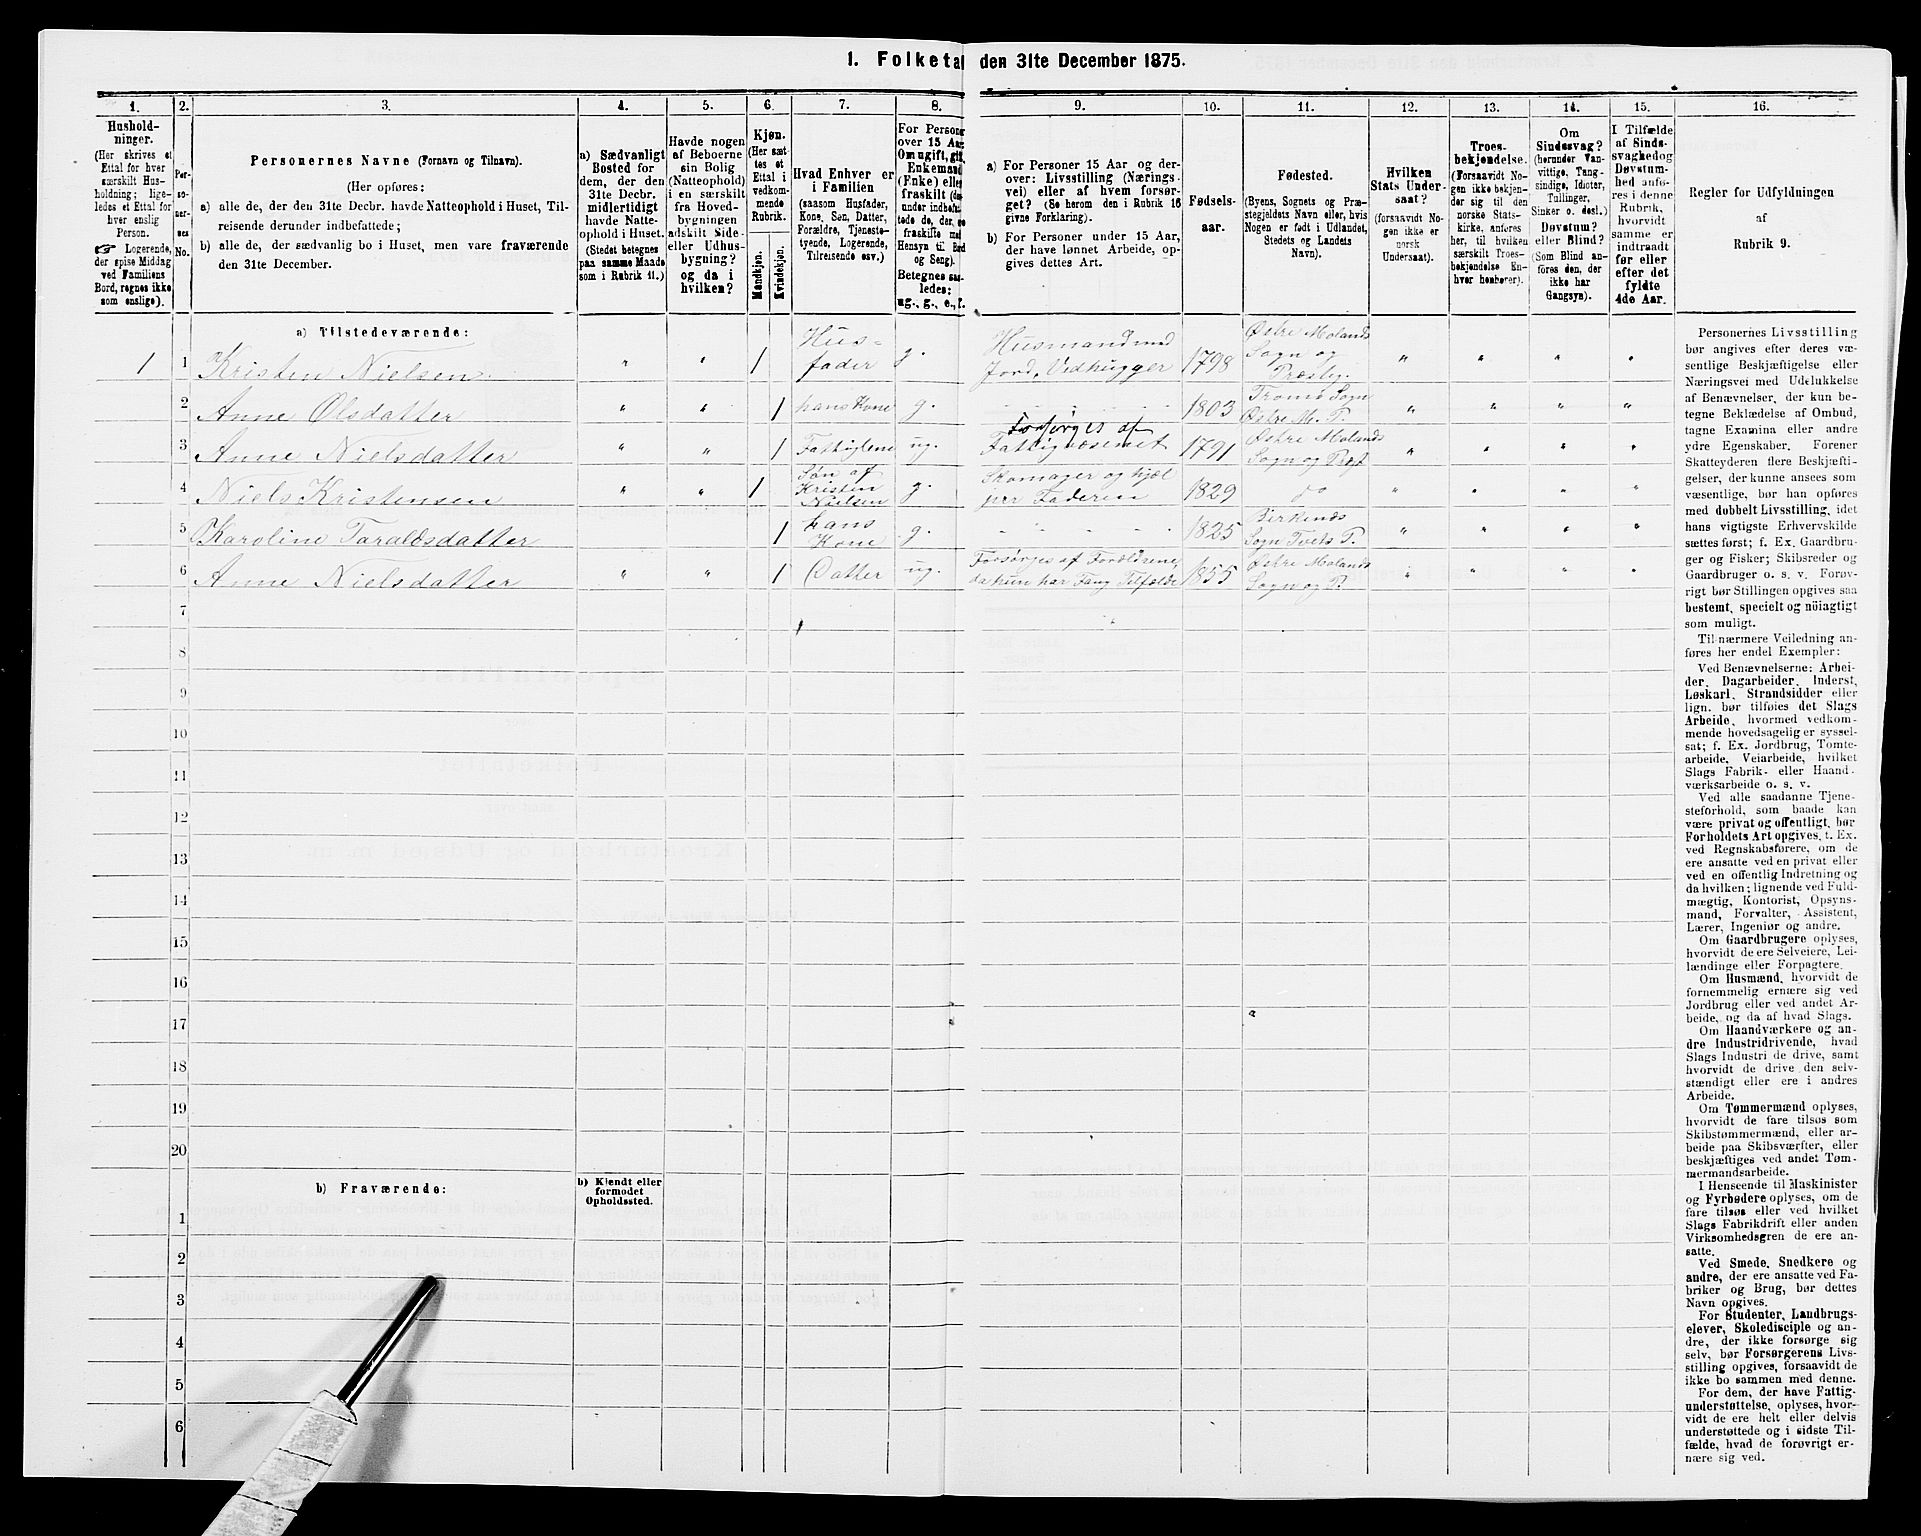 1. Folketal den 31te December 1875.
1.
2.
3.
4.
5.
6.
7.
8.
9.
10.
11.
12.
13.
14.
15.
16.
Hushold-
ninger.
(Her skrives et
Ettal for hver
særskilt Hus-
holdning; lige-
ledes et Ettal for
hver enslig
Person.
☞ Logerende,
der spise Middag
ved Familiens
Bord, regnes ikke
som enslige).
Per-
so-
ner-
nes
No.
Personernes Navne (Fornavn og Tilnavn).
(Her opføres:
a) alle de, der den 31te Decbr. havde Natteophold i Huset, Til-
reisende derunder indbefattede;
b) alle de, der sædvanlig bo i Huset, men vare fraværende
den 31te December.
a) Sædvanligt
Bosted for
dem, der den
31te Decbr.
midlertidigt
havde Natte-
ophold i Huset.
(Stedet betegnes
paa samme Maade
som i Rubrik 11.)
Havde nogen
af Beboerne
sin Bolig
(Natteophold)
i en særskilt
fra Hoved-
bygningen
adskilt Side-
eller Udhus-
bygning?
og da i
hvilken?
Kjøn.
(Her sæt-
tes et
Ettal i
vedkom-
mende
Rubrik.
Mandkjøn.
Kvindekjøn.
Hvad Enhver er
i Familien
(saasom Husfader,
Kone, Søn, Datter,
Forældre, Tjeneste-
tyende, Logerende,
Tilreisende osv.)
For Persone
over 15 Aar
Om ugift, gift,
Enkemand
(Enke) eller
fraskilt (der-
under indbefat-
tede de, der ere
fraskilte med
Hensyn til Bord
og Seng).
Betegnes saa-
ledes:
ug., g., e., f.
a) For Personer 15 Aar og der-
over: Livsstilling (Nærings-
vei) eller af hvem forsør-
get? (Se herom den i Rubrik 16
givne Forklaring).
b) For Personer under 15 Aar,
der have lønnet Arbeide, op-
gives dettes Art.
Fødsels-
aar.
Fødested.
(Byens, Sognets og Præ-
stegjeldets Navn eller, hvis
Nogen er født i Udlandet,
Stedets og Landets
Navn).
Hvilken
Stats Under-
saat?
(forsaavidt No-
gen ikke er
norsk
Undersaat).
Troes-
bekjendelse.
(Forsaavidt No-
gen ikke bekjen-
der sig til den
norske Stats-
kirke, anføres
her, til hvilken
særskilt Troes-
bekjendelse En-
hver henhører).
Om
Sindssvag?
(herunder Van-
vittige, Tung-
sindige, Idioter,
Tullinger,
Sinker o. desl.)
Døvstum?
eller Blind?
(Som Blind an-
føres den, der
ikke har
Gangsyn).
I Tilfælde
af Sinds-
svaghed og
Døvstum-
hed anfø-
res i denne
Rubrik,
hvorvidt
samme er
indtraadt
før eller
efter det
fyldte
4de Aar.
Regler for Udfyldningen
af
Rubrik 9.
a) Tilstedeværende:
1 1 Kristen Nielsen. " " 1 Hus-
fader g. Husmand med
Jord, Vedhugger 1798 Østre Molands
Sogn og
Præstg. " " " "
2 Anne Olsdatter " " 1 hans Kone g. 1803 Tromø Sogn
Østre M. P. " " " "
3 Anne Nielsdatter " " 1 Fattiglem ug. Forsørges af
Fattigvæsenet 1791 Østre Molands
Sogn og Præst " " " "
4 Niels Kristensen " " 1 Søn af
Kristen
Nielsen g. Skomager og hjæl
per Faderen 1829 do " " " "
5 Karoline Taraldsdatter 1 hans
Kone g. 1825 Birkenes
Sogn Tvets P. " " " "
6 Anne Nielsdatter " " 1 Datter ug. Forsørges af Forældrene,
da hun har Fang Tilfælde 1855 Østre Molands
Sogn og P. " " " "
7
8
9
10
11
12
13
14
15
16
17
18
19
20
b) Fraværende:
b) Kjendt eller
formodet
Opholdssted.
1
2
3
4
5
6
Personernes Livsstilling
bør angives efter deres væ-
sentlige Beskjæftigelse eller
Næringsvei med Udelukkelse
af Benævnelser, der kun be-
tegne Beklædelse af Ombud,
tagne Examina eller andre
ydre Egenskaber. Forener
Skatteyderen flere Beskjæfti-
gelser, der kunne ansees som
væsentlige, bør han opføres
med dobbelt Livsstilling, idet
hans vigtigste Erhvervskilde
sættes først; f. Ex. Gaardbru-
ger og Fisker; Skibsreder og
Gaardbruger o. s. v. Forøv-
rigt bør Stillingen opgives saa
bestemt, specielt og nöiagtigt
som muligt.
Til nærmere Veiledning an-
føres her endel Exempler:
Ved Benævnelserne: Arbei-
der, Dagarbeider, Inderst,
Løskarl, Strandsidder eller
lign. bør tilføies det Slags
Arbeide, hvormed vedkom-
mende hovedsagelig er syssel-
sat; f. Ex. Jordbrug, Tomte-
arbeide, Veiarbeide, hvilket
Slags Fabrik- eller Haand-
værksarbeide o. s. v.
Ved alle saadanne Tjene-
steforhold, som baade kan
være privat og offentligt, bør
Forholdets Art opgives, t. Ex.
ved Regnskabsførere, om de
ere ansatte ved en privat eller
ved en offentlig Indretning og
da hvilken; lignende ved Fuld-
mægtig, Kontorist, Opsyns-
mand, Forvalter, Assistent,
Lærer, Ingeniør og andre.
Om Gaardbrugere oplyses,
hvorvidt de ere Selveiere, Lei-
lændinge eller Forpagtere.
Om Husmænd, hvorvidt de
fornemmelig ernære sig ved
Jordbrug eller ved andet Ar-
beide, og da af hvad Slags.
Om Haandværkere og an-
dre Industridrivende, hvad
Slags Industri de drive, samt
hvorvidt de drive den selv-
stændigt eller ere i andres
Arbeide.
Om Tømmermænd oplyses,
hvorvidt de fare tilsøs som
Skibstømmermænd, eller ar-
beide paa Skibsværfter, eller
beskjæftiges ved andet Tøm-
mermandsarbeide.
I Henseende til Maskinister
og Fyrbødere oplyses, om de
fare tilsøs eller ved hvilket
Slags Fabrikdrift eller anden
Virksomhedsgren de ere an-
satte.
Ved Smede, Snedkere og
andre, der ere ansatte ved Fa-
briker og Brug, bør dettes
Navn opgives.
For Studenter, Landbrugs-
elever, Skoledisciple og an-
dre, der ikke forsørge sig
selv, bør Forsørgerens Livs-
stilling opgives, forsaavidt de
ikke bo sammen med denne.
For dem, der have Fattig-
understøttelse, oplyses, hvor-
vidt de ere helt eller delvis
understøttede og i sidste Til-
fælde, hvad de forøvrigt er-
nære sig ved.